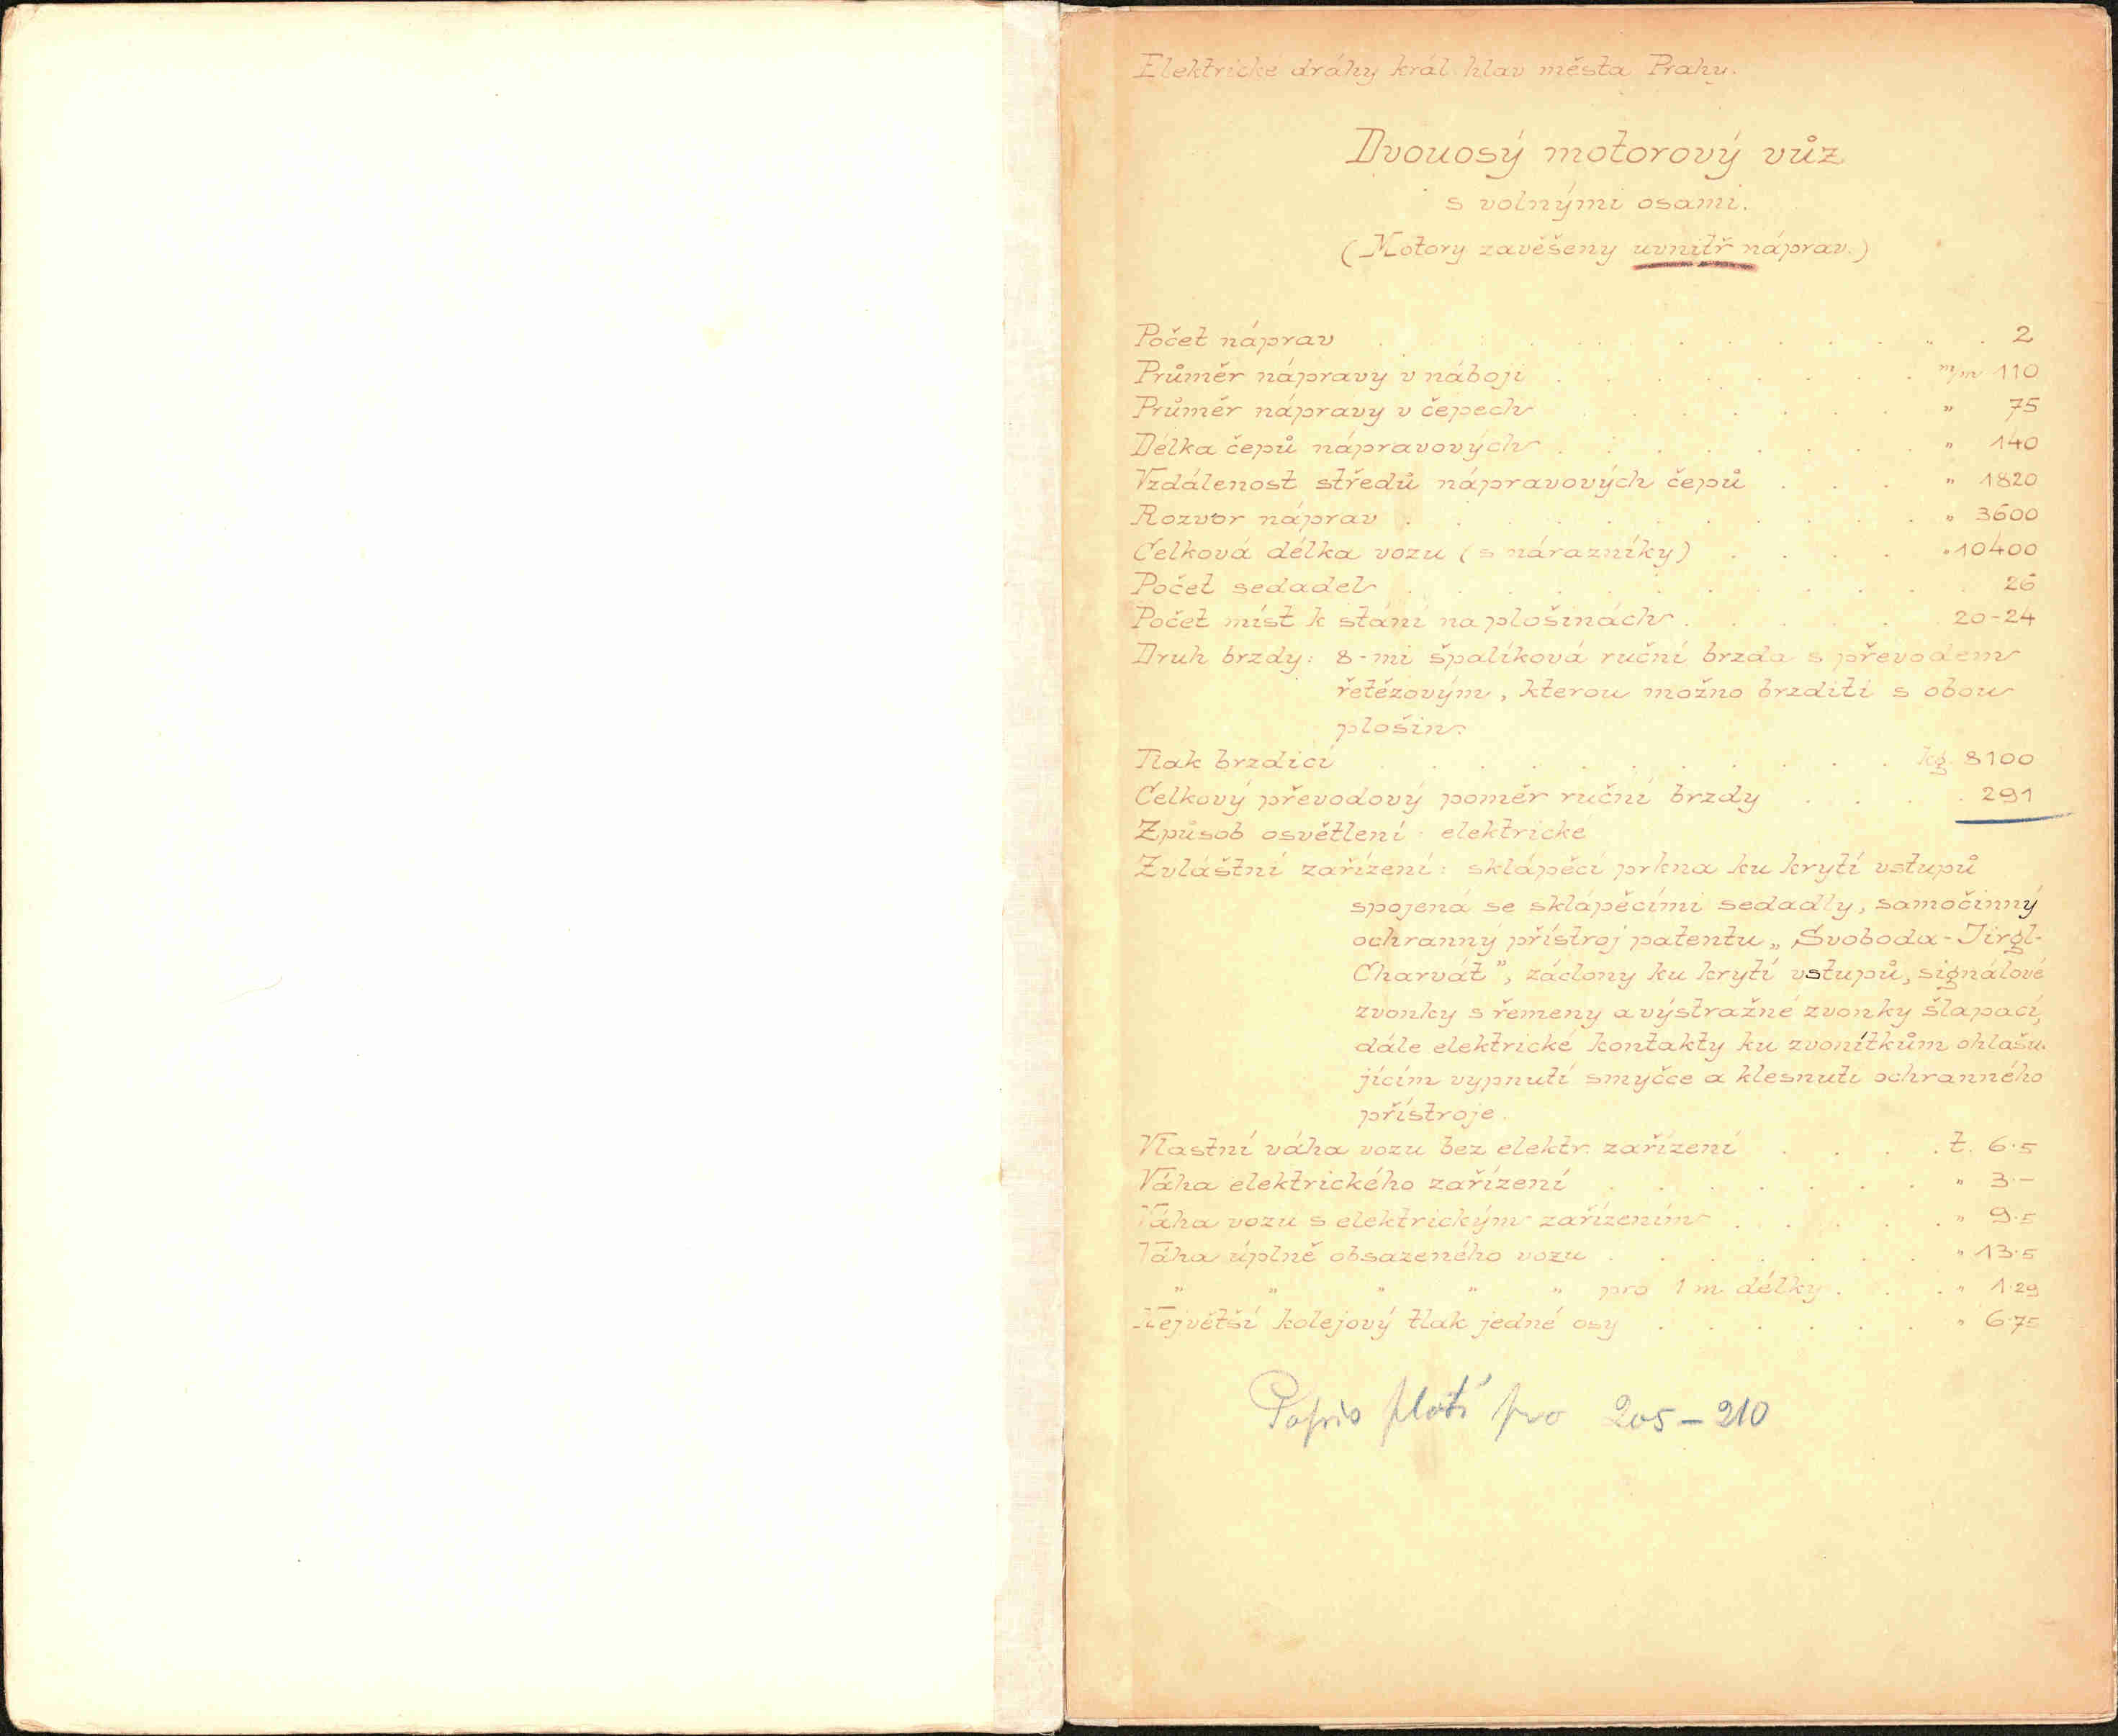 Elektrické dráhy král. hlav. města Prahy.
Dvouosý motorový vůz
s volnými osami.
(Motory zavěšeny uvnitř náprav.)
Počet náprav . . . . . . . . . . . . . 2
Průměr nápravy v náboji . . . . . . . . m/m 110
Průměr nápravy v čepech . . . . . . . " 75
Délka čepů nápravových . . . . . . . . " 140
Vzdálenost středů nápravových čepů . . . " 1820
Rozvor náprav . . . . . . . . . . . " 3600
Celková délka vozu (s nárazníky) . . . . " 10400
Počet sedadel . . . . . . . . . . . . 26
Počet míst k stání na plošinách . . . . . . 20-24
Druh brzdy: 8-mi špalíková ruční brzda s převodem
řetězovým, kterou možno brzditi s obou
plošin.
Tlak brzdicí . . . . . . . . . . . kg. 8100
Celkový převodový poměr ruční brzdy . . . . 291
Způsob osvětlení: elektrické
Zvláštní zařízení: sklápěcí prkna ku krytí vstupů
spojená se sklápěcími sedadly, samočinný
ochranný přístroj patentu „Svoboda-Jirgl-
Charvát", záclony ku krytí vstupů, signálové
zvonky s řemeny a výstražné zvonky šlapací,
dále elektrické kontakty ku zvonítkům ohlašu-
jícím vypnutí smyčce a klesnutí ochranného
přístroje.
Vlastní váha vozu bez elektr. zařízení . . . . t. 6·5
Váha elektrického zařízení . . . . . . . " 3·—
Váha vozu s elektrickým zařízením . . . . . " 9·5
Váha úplně obsazeného vozu . . . . . . . " 13·5
" " " " " pro 1 m délky . . . " 1·29
Největší kolejový tlak jedné osy . . . . . . " 6·75
Popis platí pro 205–210